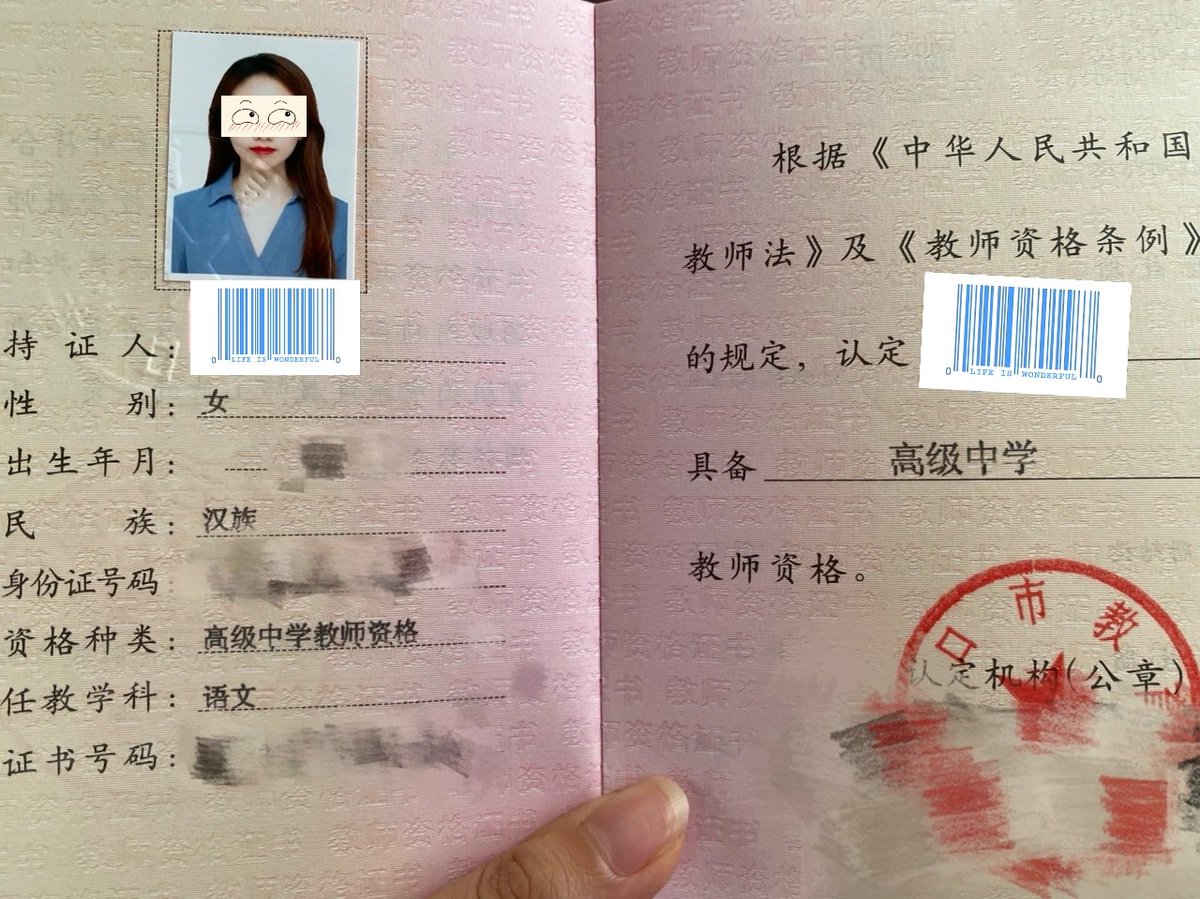 持证人：
0 LIFE IS WONDERFUL 0
性别：女
出生年月：
民族：汉族
身份证号码
资格种类：高级中学教师资格
任教学科：语文
证书号码：
根据《中华人民共和国
教师法》及《教师资格条例》
的规定，认定
0 LIFE IS WONDERFUL 0
具备 高级中学
教师资格。
口市教
认定机构(公章)